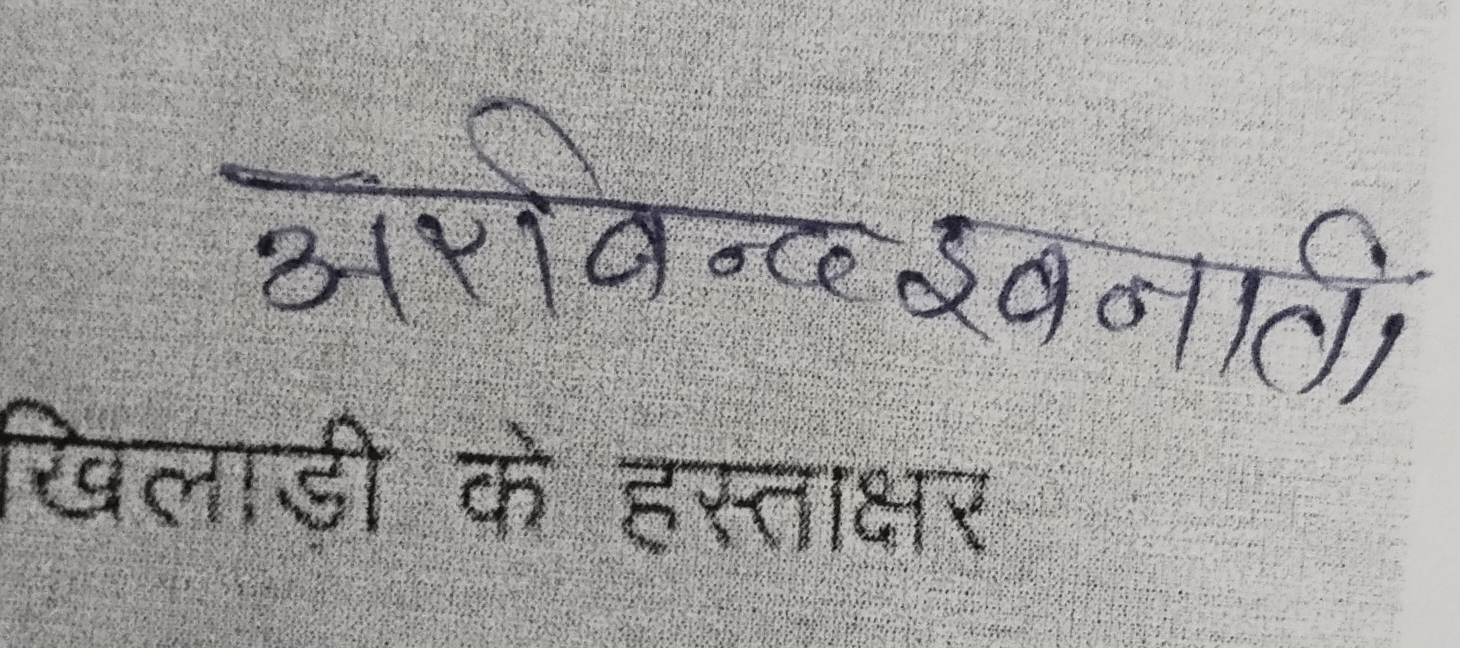 अरविन्द इवनाती
खिलाड़ी के हस्ताक्षर